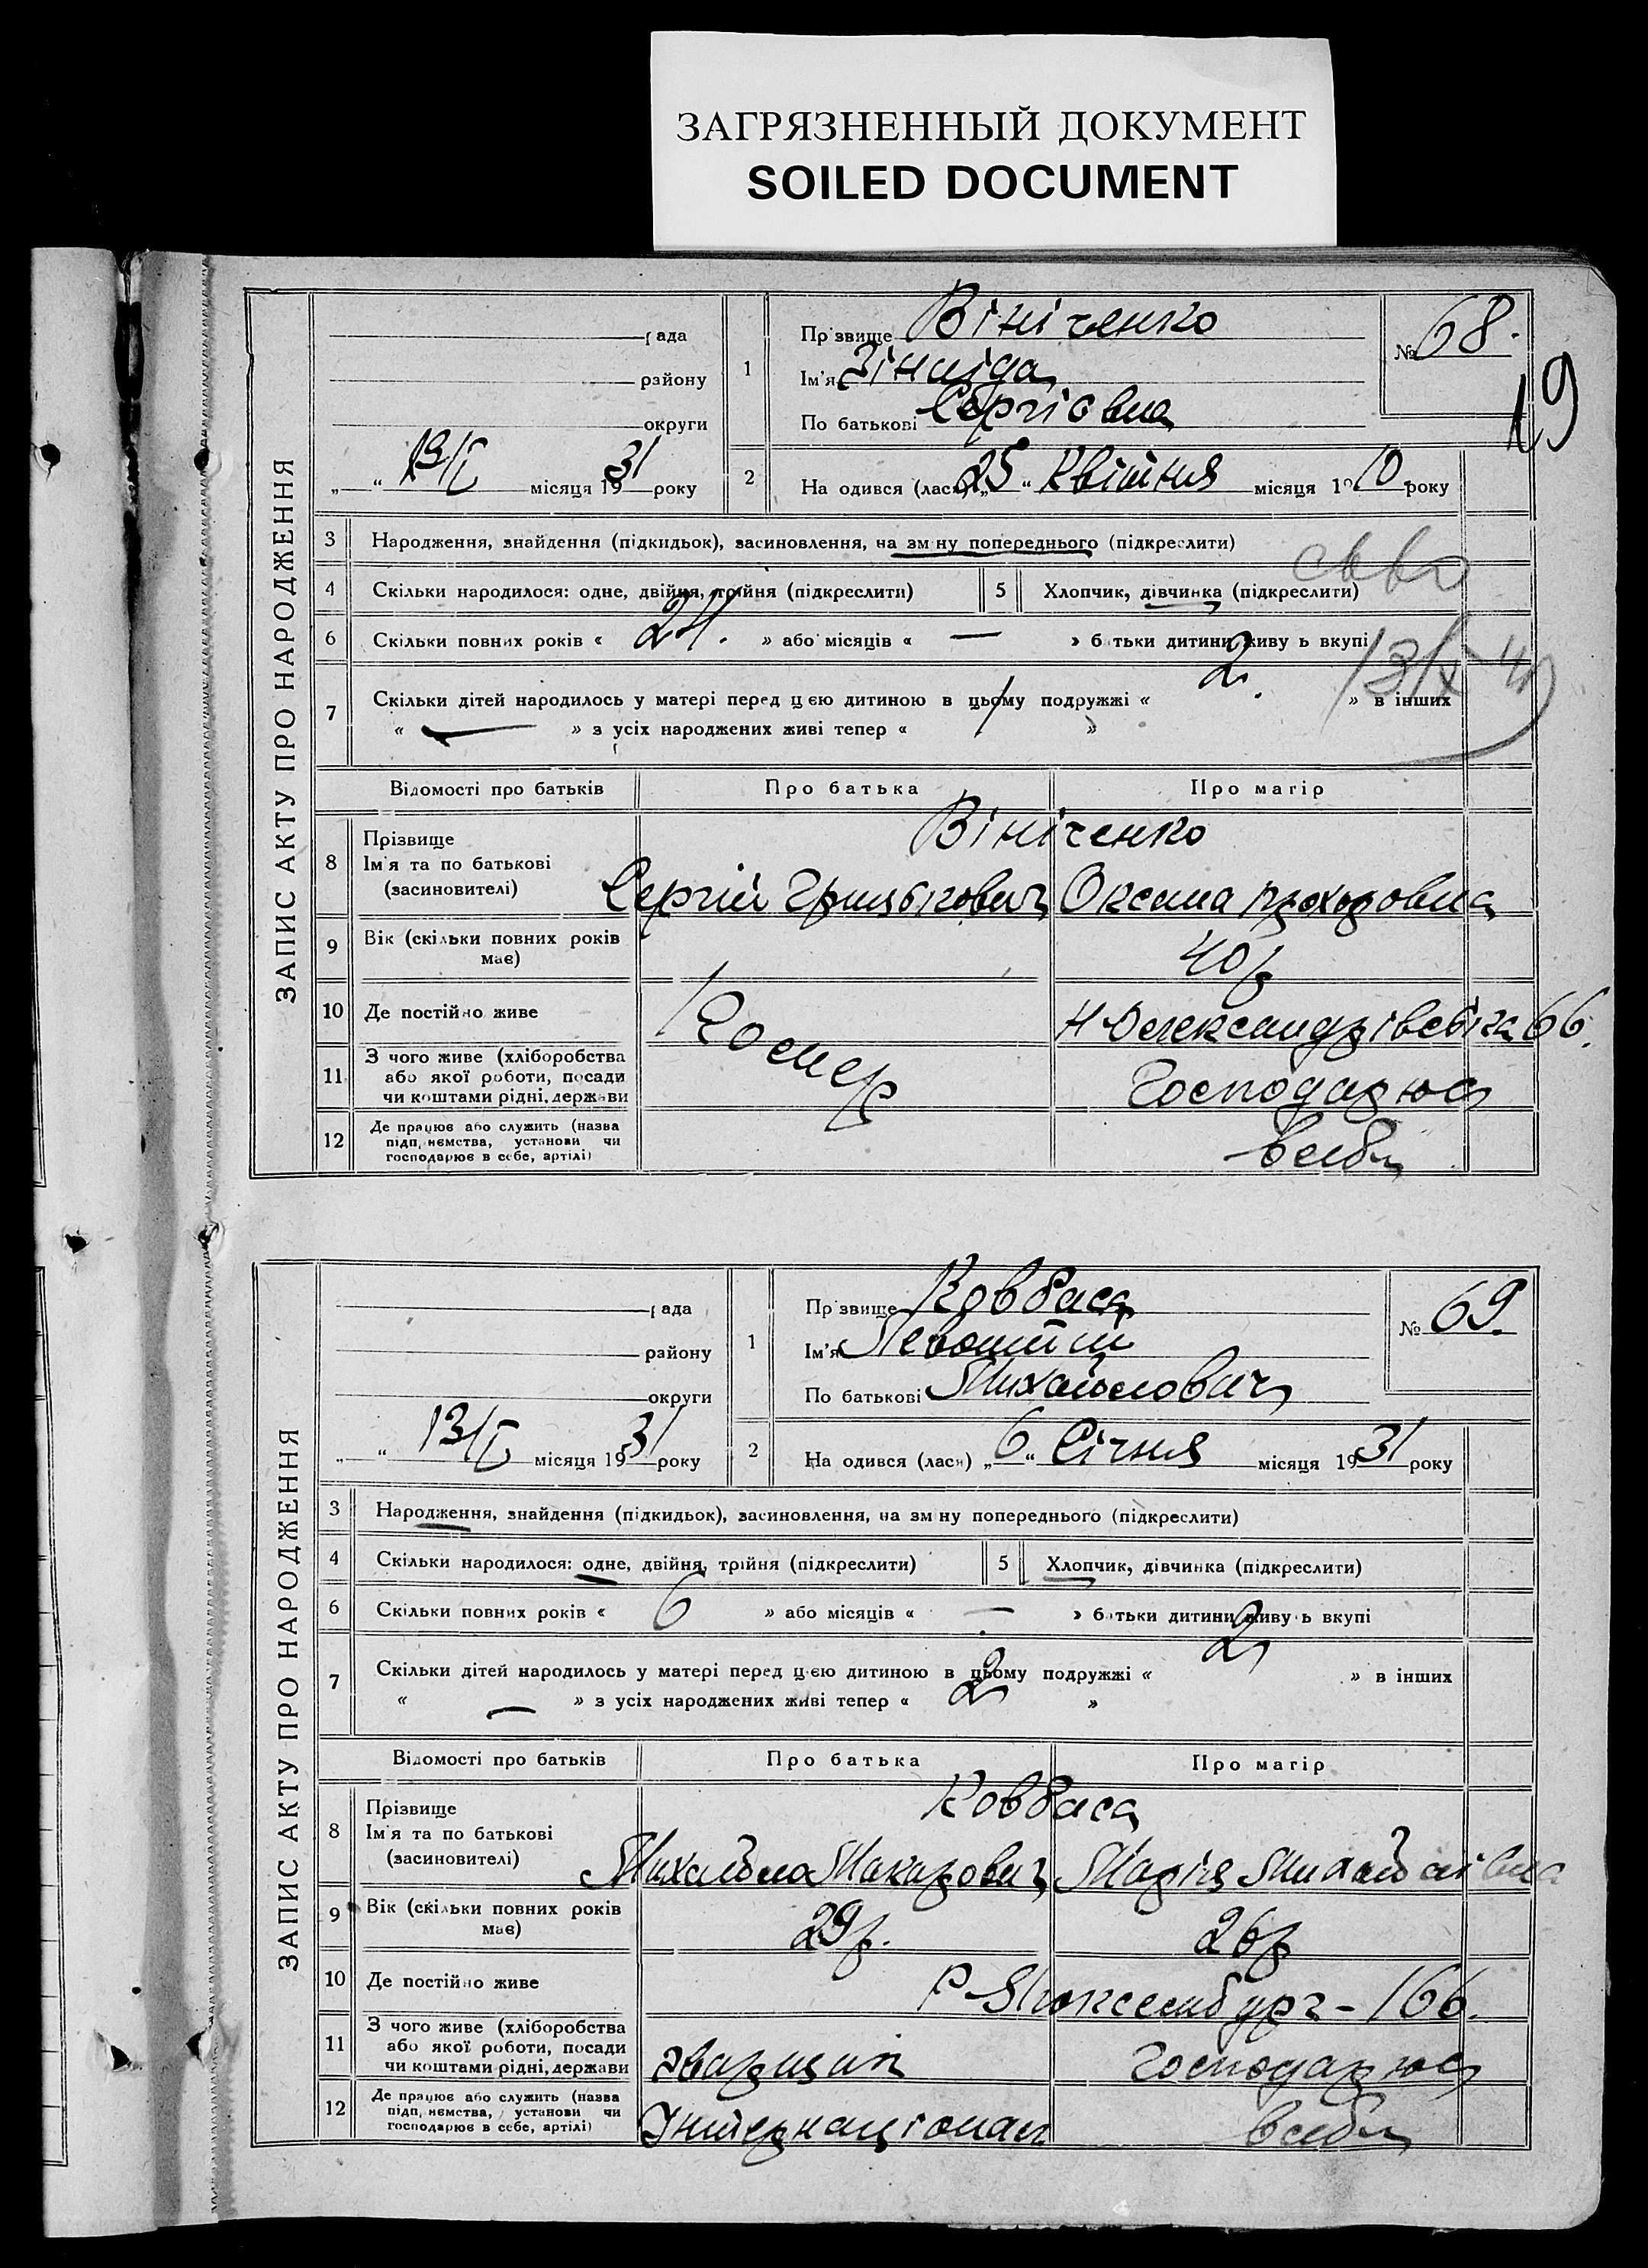 ЗАГРЯЗНЕННЫЙ ДОКУМЕНТ
SOILED DOCUMENT
19
ЗАПИС АКТУ ПРО НАРОДЖЕННЯ
рада
району
округи
„ “ 13/I місяця 1931 року
1
Прізвище Вініченко
Ім'я Зінаіда
По батькові Сергіовна
№ 68.
2
На одився (лася) „25“ Квітня місяця 1910 року
3 Народження, знайдення (підкидьок), засиновлення, на зміну попереднього (підкреслити)
4 Скільки народилося: одне, двійня, трійня (підкреслити)
5 Хлопчик, дівчинка (підкреслити)
6 Скільки повних років « 24. » або місяців « — » батьки дитини живуть вкупі
7 Скільки дітей народилось у матері перед цією дитиною в цьому подружжі « 2. » в інших
« — » з усіх народжених живі тепер « 1 »
Відомості про батьків Про батька Про матір
8 Прізвище
Ім'я та по батькові
(засиновителі)
Вініченко
Сергій Грицькович Оксана
9 Вік (скільки повних років має) 40р
10 Де постійно живе 66.
11 З чого живе (хліборобства або якої роботи, посади чи коштами рідні, держави Господарює
12 Де працює або служить (назва підприємства, установи чи господарює в себе, артілі) всебя
ЗАПИС АКТУ ПРО НАРОДЖЕННЯ
рада
району
округи
„ “ 13/I місяця 1931 року
1
Прізвище Ковбаса
Ім'я
По батькові Михайлович
№ 69.
2
На одився (лася) „6“ Січня місяця 1931 року
3 Народження, знайдення (підкидьок), засиновлення, на зміну попереднього (підкреслити)
4 Скільки народилося: одне, двійня, трійня (підкреслити)
5 Хлопчик, дівчинка (підкреслити)
6 Скільки повних років « 6 » або місяців « — » батьки дитини живуть вкупі
7 Скільки дітей народилось у матері перед цією дитиною в цьому подружжі « 2 » в інших
« — » з усіх народжених живі тепер « 2 »
Відомості про батьків Про батька Про матір
8 Прізвище
Ім'я та по батькові
(засиновителі)
Ковбаса
Михайло Макарович Марія Михайлівна
9 Вік (скільки повних років має) 29р. 26р
10 Де постійно живе Р-Люксембург - 166.
11 З чого живе (хліборобства або якої роботи, посади чи коштами рідні, держави Господарює
12 Де працює або служить (назва підприємства, установи чи господарює в себе, артілі) Інтернаціонал всебя